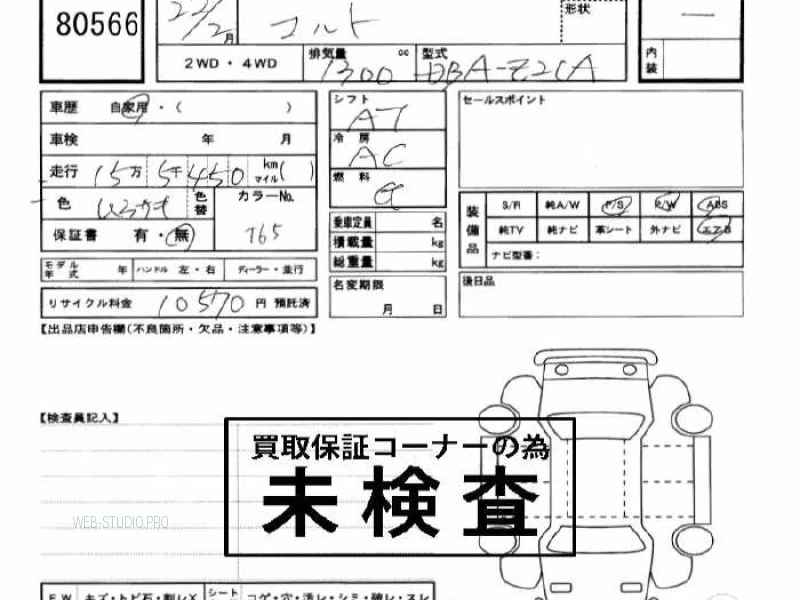 80566
22/2月 コルト
形状
一
2WD・4WD
排気量 cc 1300
型式 DBA-Z21A
内装
車歴 自家用・( )
シフト AT
セールスポイント
車検 年 月
冷房 AC
走行 15万5千450 km マイル( )
燃料
色 色替
カラーNo. 765
保証書 有・無
乗車定員 名
積載量 kg
総重量 kg
装備品 S/R 純A/W P/S P/W ABS
純TV 純ナビ 革シート 外ナビ エアB
ナビ型番:
モデル年式 年 ハンドル 左・右 ディーラー・並行
名変期限 月 日
後日品
リサイクル料金 10570 円 預託済
【出品店申告欄(不良箇所・欠品・注意事項等)】
【検査員記入】
買取保証コーナーの為
未検査
WEB-STUDIO.PRO
キズ・トビ石・割レX シート コゲ・穴・汚レ・シミ・破レ・スレ